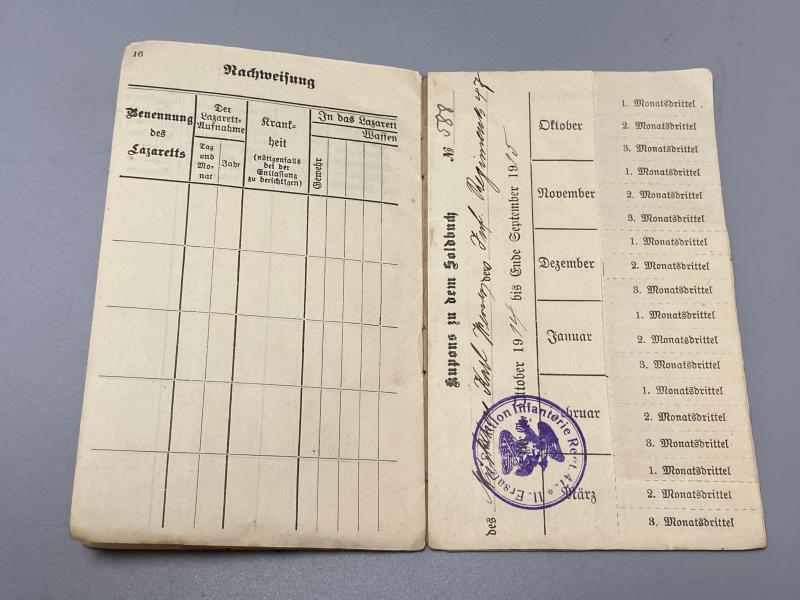 16
Nachweisung
Benennung
des
Lazaretts
Der
Lazarett-
Aufnahme
Tag
und
Mo-
nat
Jahr
Krank-
heit
(nötigenfalls
bei der
Entlassung
zu berichtigen)
In das Lazarett
Waffen
Gewehr
№ 588
Kupons zu dem Soldbuch
des Karl des Inf. Regiments 47
Oktober 1914 bis Ende September 1915
II. Ersatz Bataillon Infanterie Regt. 47. *
Oktober
1. Monatsdrittel
2. Monatsdrittel
3. Monatsdrittel
November
1. Monatsdrittel
2. Monatsdrittel
3. Monatsdrittel
Dezember
1. Monatsdrittel
2. Monatsdrittel
3. Monatsdrittel
Januar
1. Monatsdrittel
2. Monatsdrittel
3. Monatsdrittel
bruar
1. Monatsdrittel
2. Monatsdrittel
3. Monatsdrittel
März
1. Monatsdrittel
2. Monatsdrittel
3. Monatsdrittel